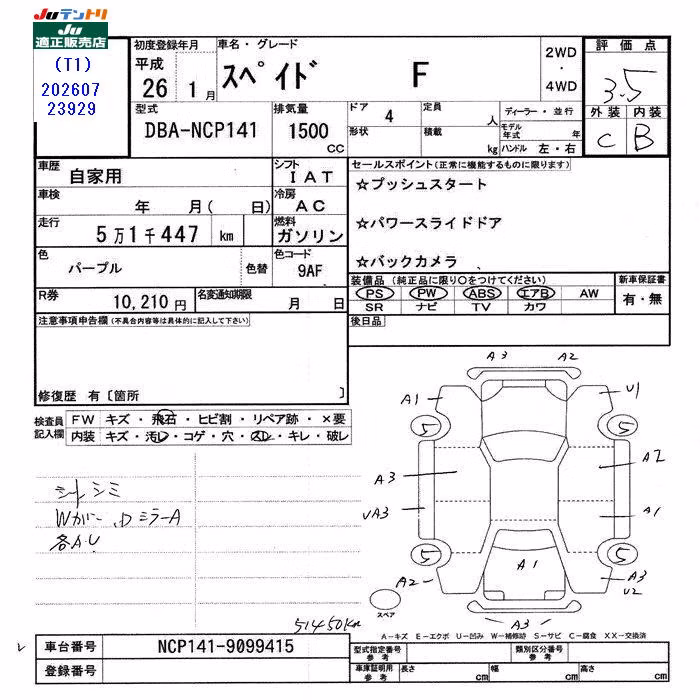 Juテントリ
Ju
適正販売店
(T1)
202607
23929
初度登録年月
平成
26 1月
車名・グレード
スペイド F
2WD
・
4WD
評価点
3.5
外装 内装
C B
型式
DBA-NCP141
排気量
1500
CC
ドア 4
形状
定員 人
積載 kg
ディーラー・並行
モデル年式 年
ハンドル 左・右
車歴
自家用
シフト
I A T
車検
年 月( 日)
冷房
A C
走行
5万1千447 km
燃料
ガソリン
色
パープル
色替
色コード
9AF
R券
10,210円
名変通知期限
月 日
セールスポイント(正常に機能するものに限ります)
☆プッシュスタート
☆パワースライドドア
☆バックカメラ
装備品(純正品に限り○をつけてください)
PS PW ABS エアB AW
SR ナビ TV カワ
新車保証書
有・無
後日品
注意事項申告欄(不具合内容等は具体的に記入して下さい)
修復歴 有〔箇所 〕
検査員
記入欄
FW キズ・飛石・ヒビ割・リペア跡・×要
内装 キズ・汚レ・コゲ・穴・スレ・キレ・破レ
シートシミ
Wカバー、DミラーA
各AU
51450km
A3 A2
A1 U1
5 5
A3 A2
UA3 A1
5 5
A1
A2 A3
U2
A3
スペア
A－キズ E－エクボ U－凹み W－補修跡 S－サビ C－腐食 XX－交換済
車台番号 NCP141-9099415
登録番号
型式指定番号
参考
類別区分番号
参考
車庫証明用
参考
長さ cm 幅 cm 高さ cm